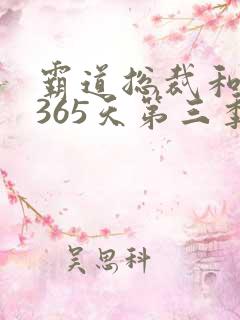 霸道总裁和
365天第三季
吴思科